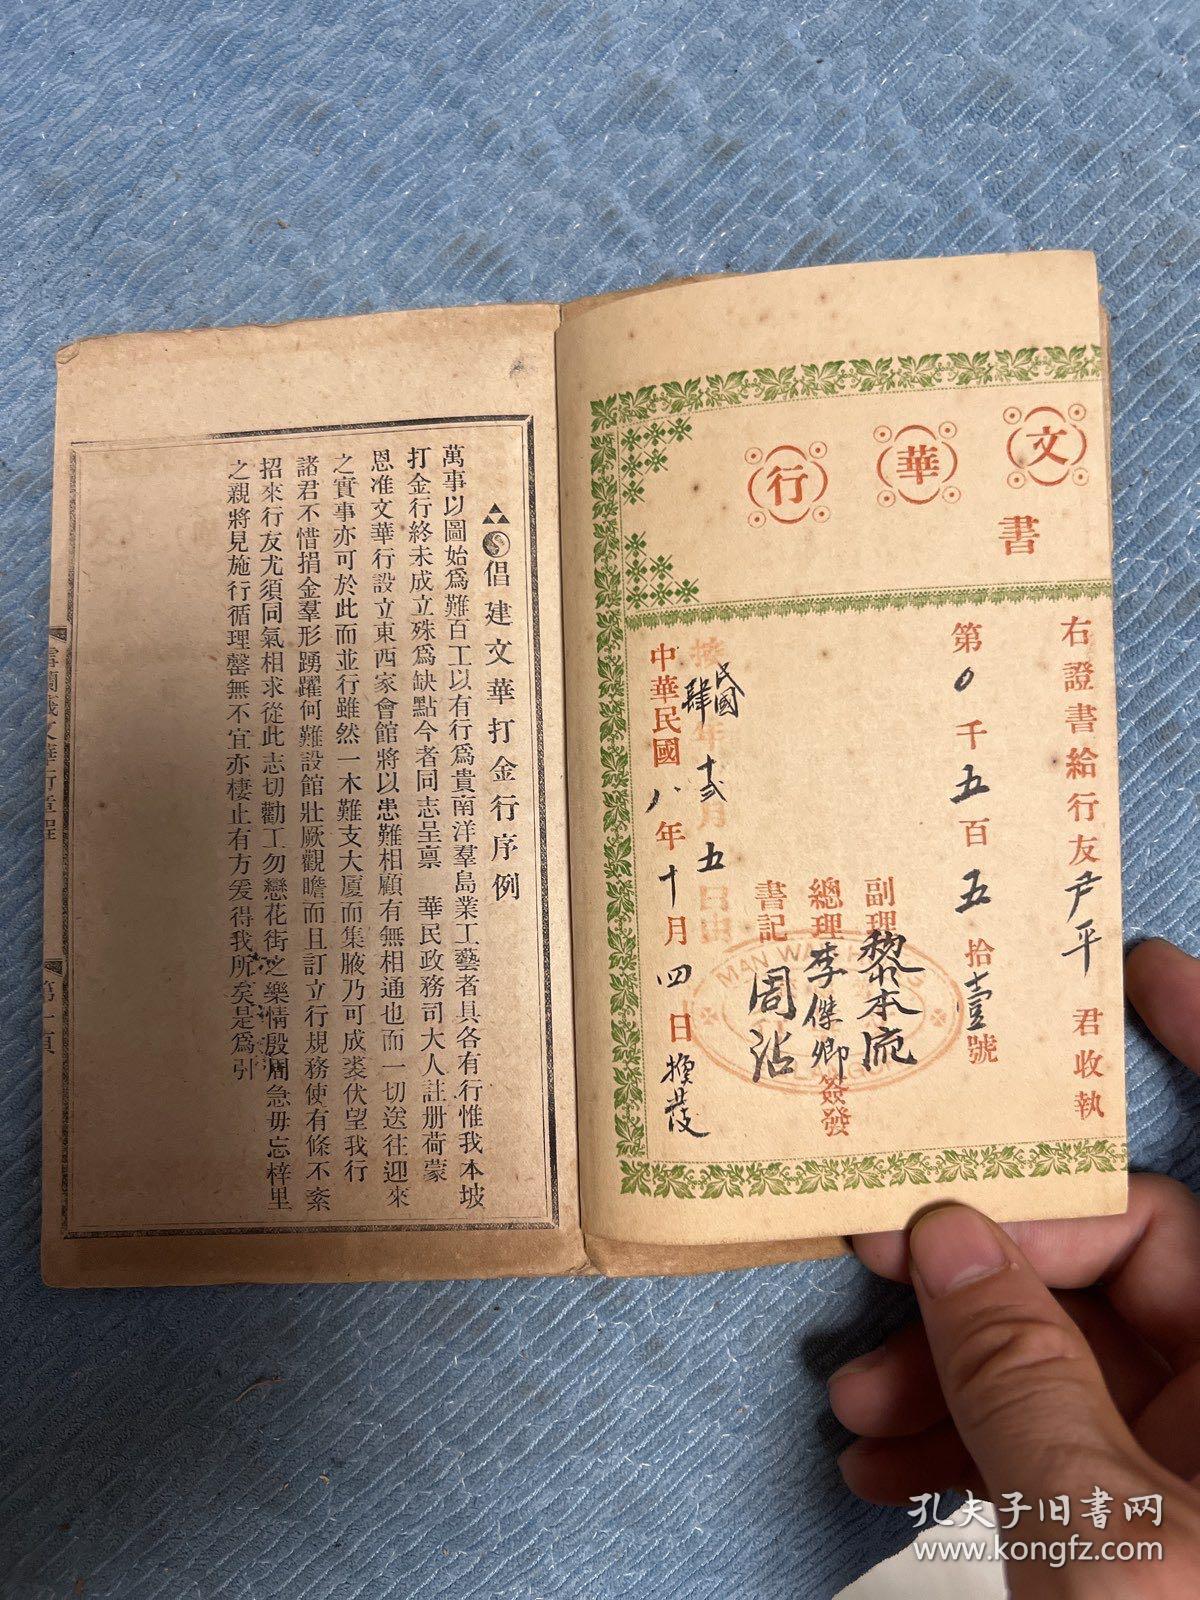 文華行
書
右證書給行友卢平君收執
第0千五百五拾壹號
副理黎本流
總理李傑卿簽發
書記周沾
MAN WAH H
民國肆年十弍月五日由
中華民國八年十月四日換發
倡建文華打金行序例
萬事以圖始爲難百工以有行爲貴南洋羣島業工藝者具各有行惟我本坡
打金行終未成立殊爲缺點今者同志呈禀 華民政務司大人註册荷蒙
恩准文華行設立東西家會館將以患難相顧有無相通也而一切送往迎來
之實事亦可於此而並行雖然一木難支大厦而集腋乃可成裘伏望我行
諸君不惜捐金羣形踴躍何難設館壯厥觀瞻而且訂立行規務使有條不紊
招來行友尤須同氣相求從此志切勸工勿戀花街之樂情殷周急毋忘梓里
之親將見施行循理罄無不宜亦棲止有方爰得我所矣是爲引
文華行章程
第一頁
孔夫子旧书网
www.kongfz.com